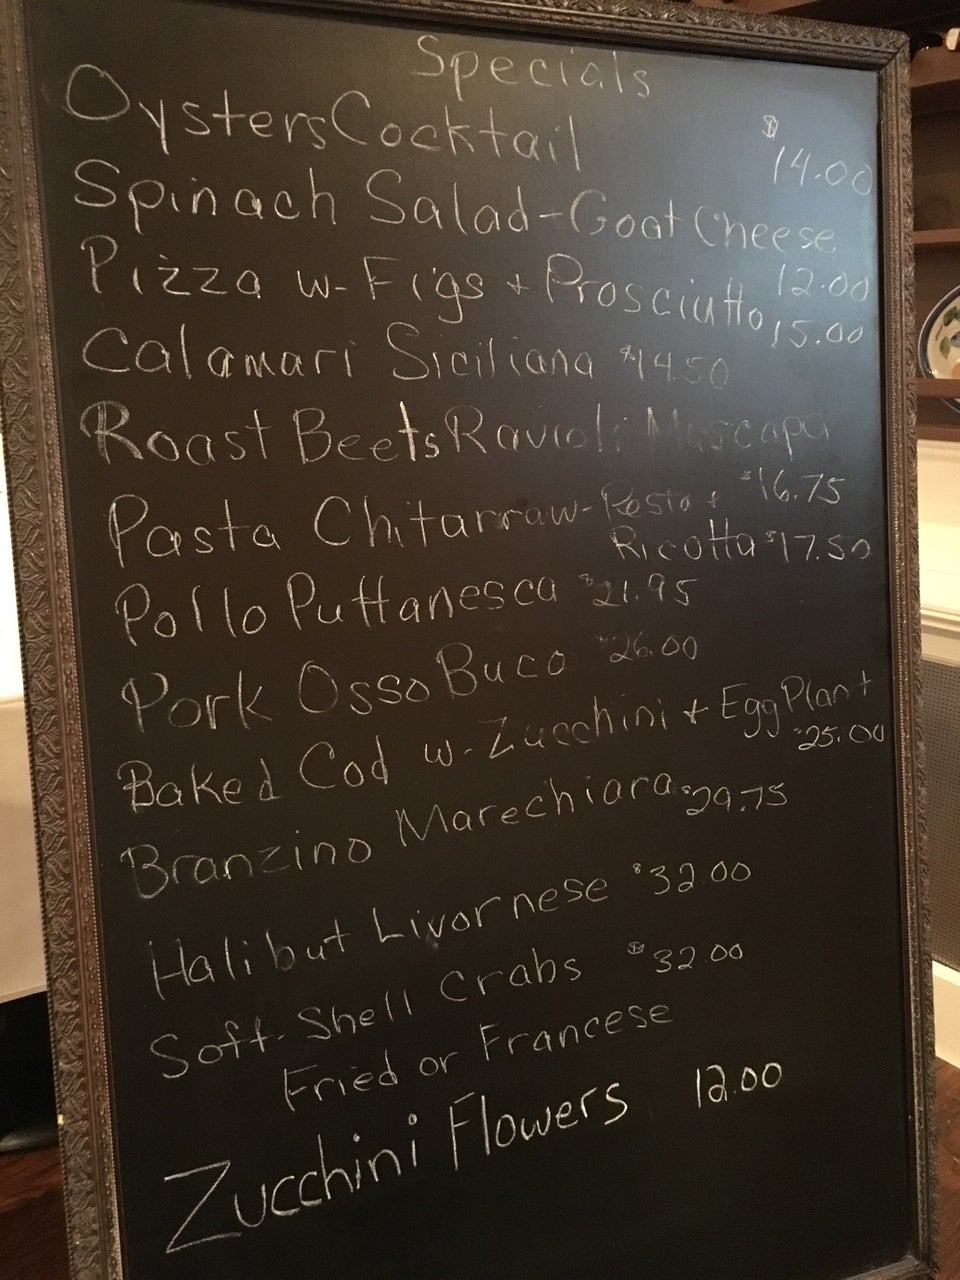 Specials
Oysters Cocktail $14.00
Spinach Salad - Goat Cheese 12.00
Pizza w- Figs + Prosciutto 15.00
Calamari Siciliana $14.50
Roast Beets Ravioli Mascapa $16.75
Pasta Chitarra w- Pesto +
Ricotta $17.50
Pollo Puttanesca $21.95
Pork Osso Buco $26.00
Baked Cod w- Zucchini + Egg Plant
$25.00
Branzino Marechiara $29.75
Halibut Livornese $32.00
Soft-Shell Crabs $32.00
Fried or Francese
Zucchini Flowers 12.00